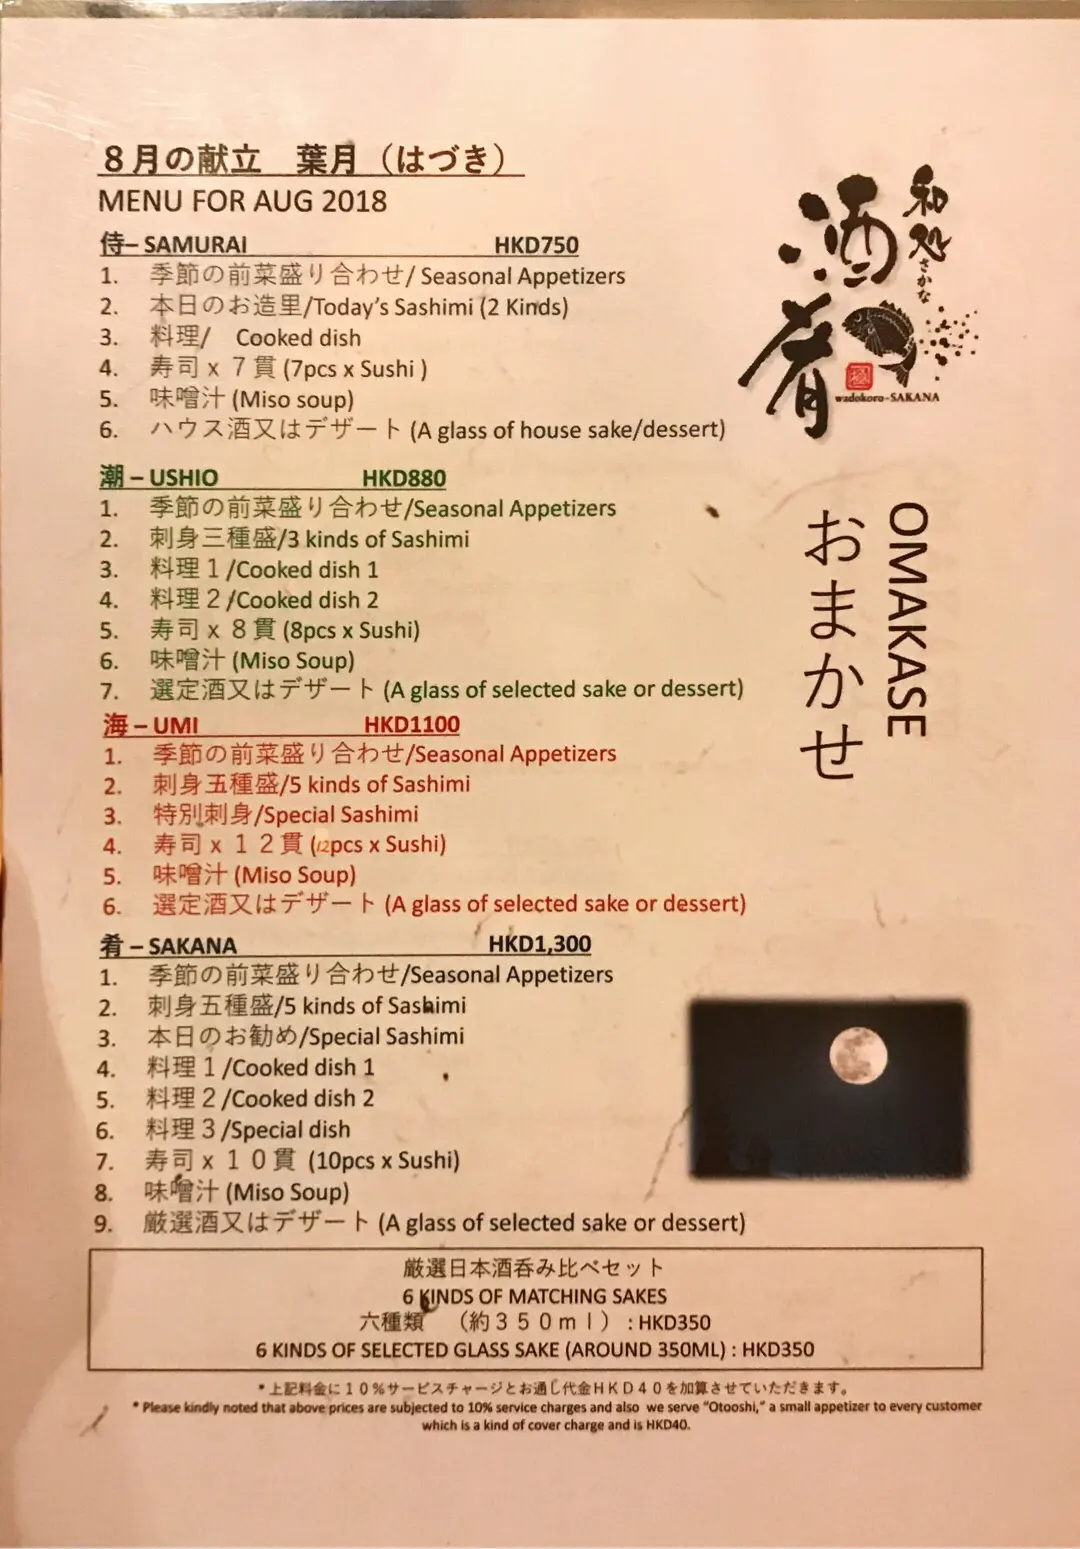 8月の献立　葉月（はづき）
MENU FOR AUG 2018
侍– SAMURAI HKD750
1. 季節の前菜盛り合わせ/ Seasonal Appetizers
2. 本日のお造里/Today's Sashimi (2 Kinds)
3. 料理/ Cooked dish
4. 寿司 x ７貫 (7pcs x Sushi )
5. 味噌汁 (Miso soup)
6. ハウス酒又はデザート (A glass of house sake/dessert)
潮 – USHIO HKD880
1. 季節の前菜盛り合わせ/Seasonal Appetizers
2. 刺身三種盛/3 kinds of Sashimi
3. 料理１/Cooked dish 1
4. 料理２/Cooked dish 2
5. 寿司 x ８貫 (8pcs x Sushi)
6. 味噌汁 (Miso Soup)
7. 選定酒又はデザート (A glass of selected sake or dessert)
海 – UMI HKD1100
1. 季節の前菜盛り合わせ/Seasonal Appetizers
2. 刺身五種盛/5 kinds of Sashimi
3. 特別刺身/Special Sashimi
4. 寿司 x １２貫 (12pcs x Sushi)
5. 味噌汁 (Miso Soup)
6. 選定酒又はデザート (A glass of selected sake or dessert)
肴 – SAKANA HKD1,300
1. 季節の前菜盛り合わせ/Seasonal Appetizers
2. 刺身五種盛/5 kinds of Sashimi
3. 本日のお勧め/Special Sashimi
4. 料理１/Cooked dish 1
5. 料理２/Cooked dish 2
6. 料理３/Special dish
7. 寿司 x １０貫 (10pcs x Sushi)
8. 味噌汁 (Miso Soup)
9. 厳選酒又はデザート (A glass of selected sake or dessert)
和処
さかな
酒肴
wadokoro-SAKANA
OMAKASE
おまかせ
厳選日本酒呑み比べセット
6 KINDS OF MATCHING SAKES
六種類　（約３５０ｍｌ）: HKD350
6 KINDS OF SELECTED GLASS SAKE (AROUND 350ML) : HKD350
*上記料金に１０％サービスチャージとお通し代金ＨＫＤ４０を加算させていただきます。
* Please kindly noted that above prices are subjected to 10% service charges and also we serve "Otooshi," a small appetizer to every customer
which is a kind of cover charge and is HKD40.